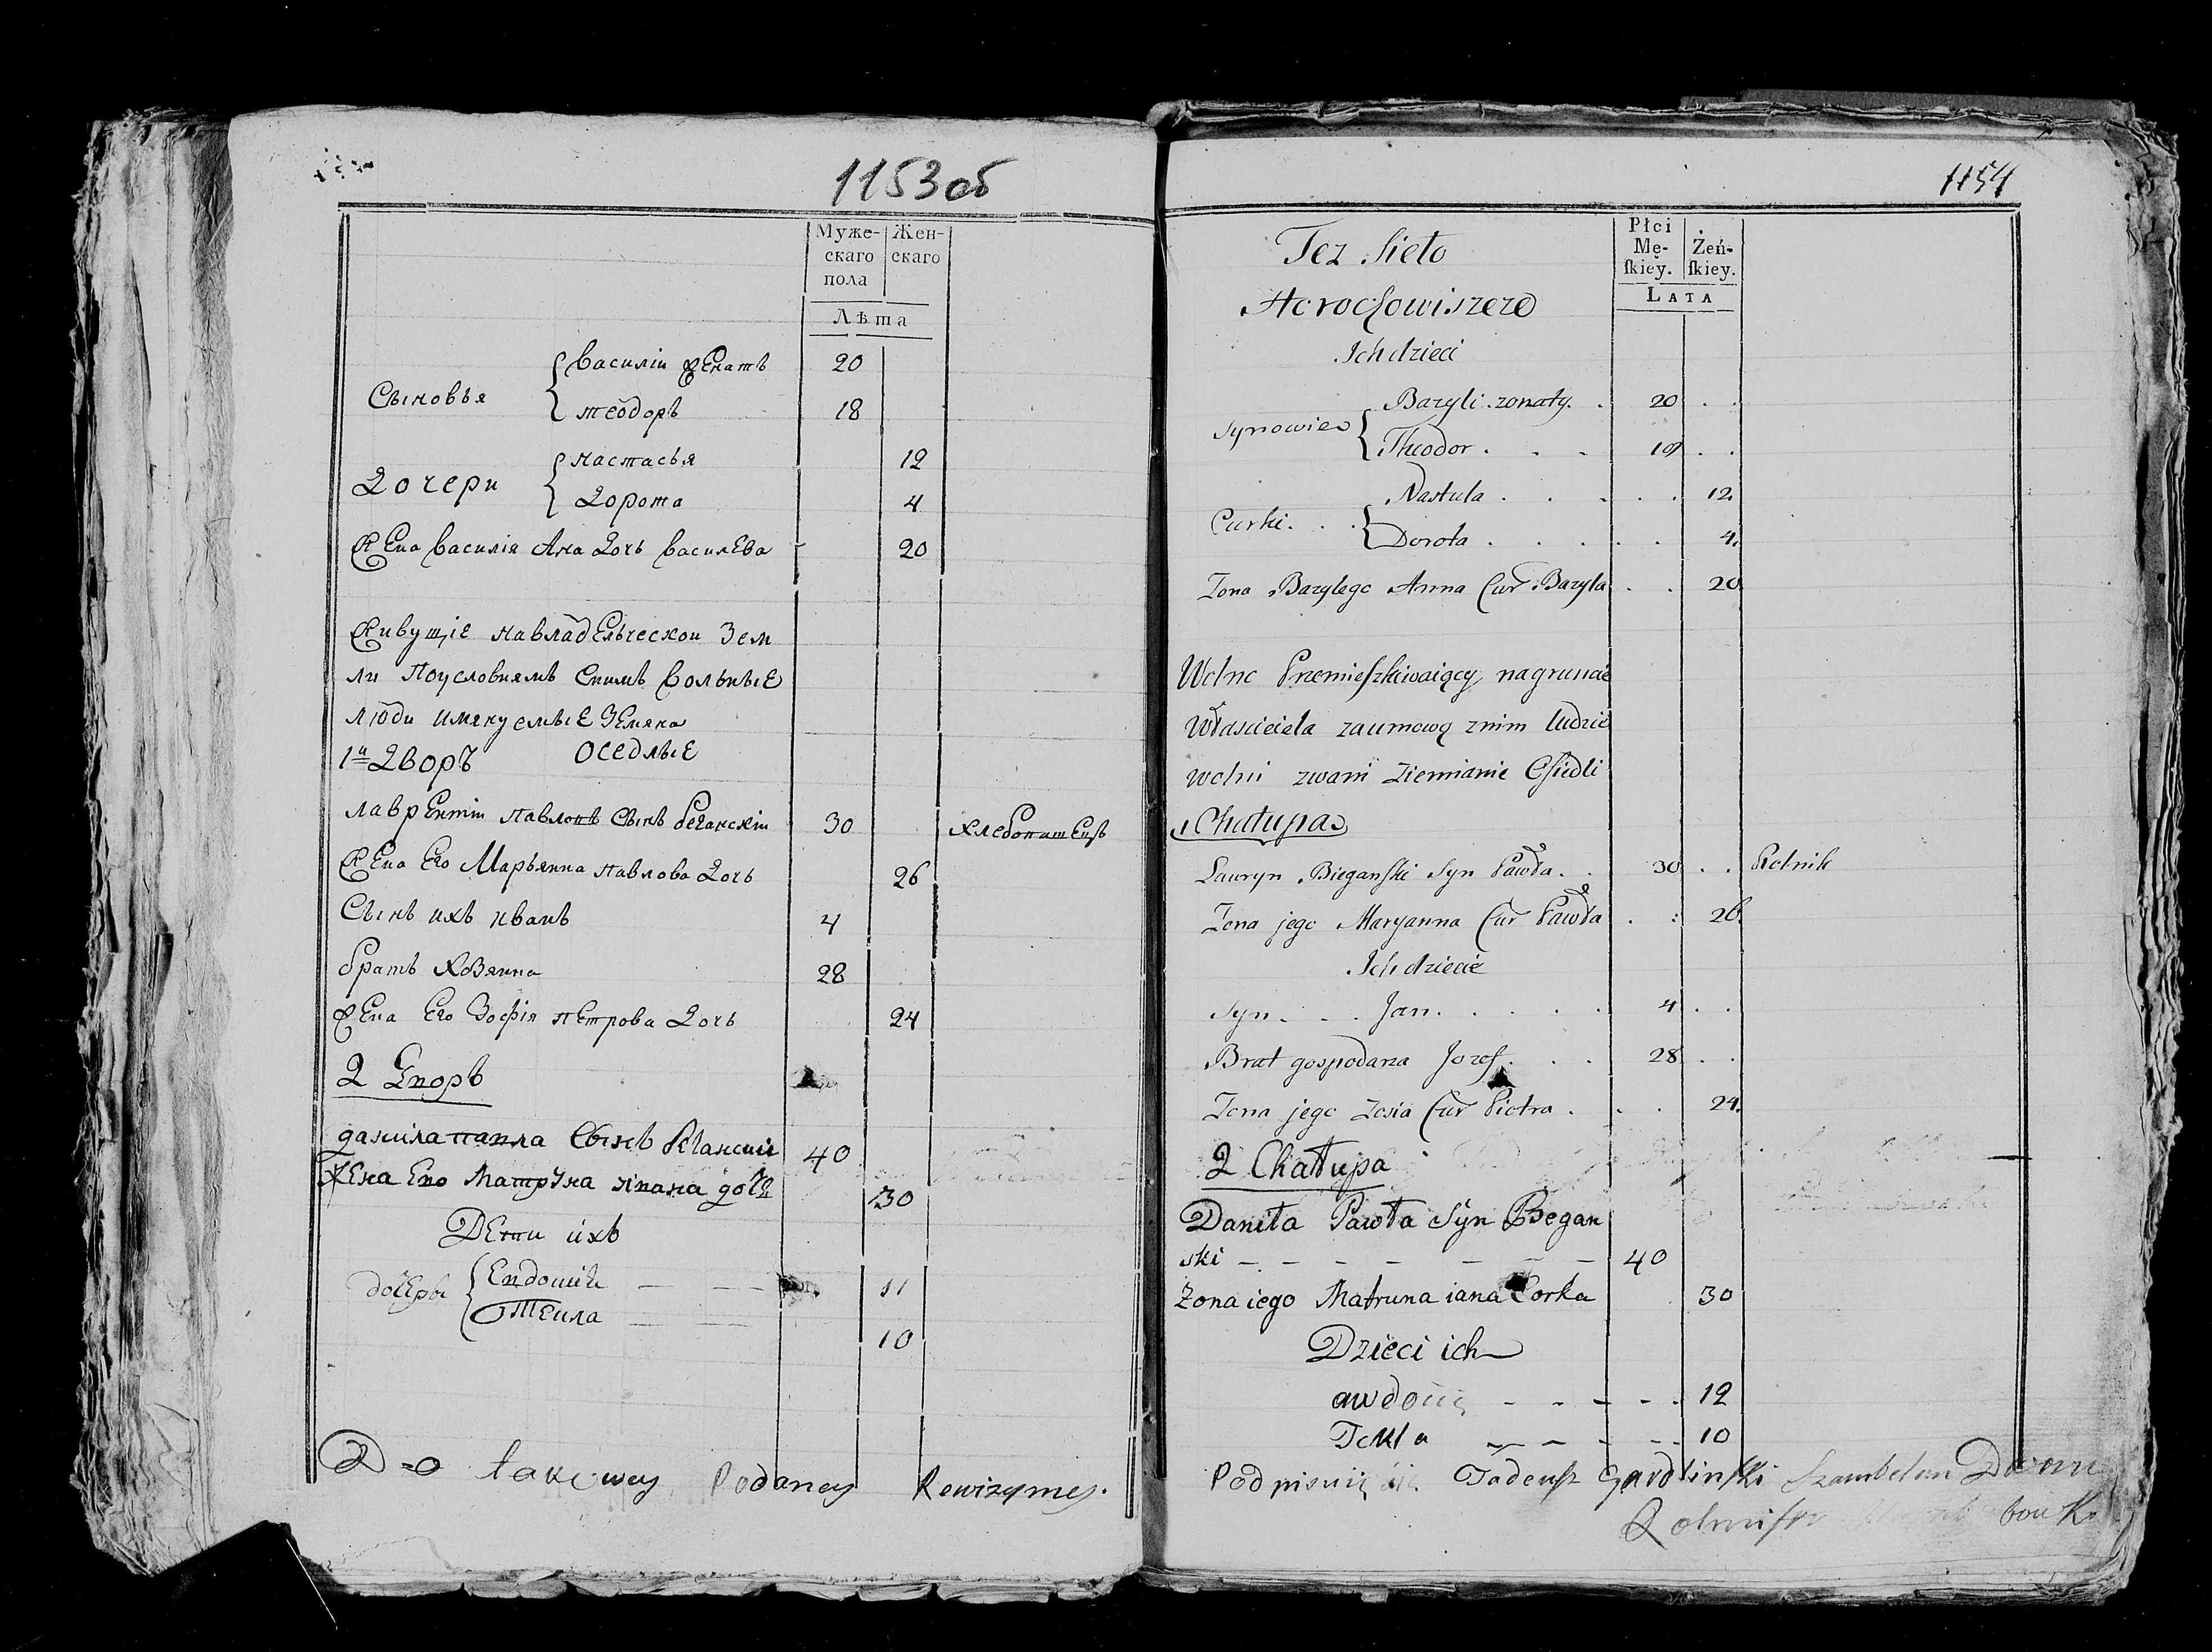 1153 об
Муже-
скаго
пола
Жен-
скаго
Лѣта
Василіи женатъ 20
Сыновья
теодоръ 18
настасья 12
Дочери
Дорота 4
жена Василія Ана Дочь Василева 20
живущіе на владельческои Зем
ли По условиямъ Снимъ Вольные
люди имянуемые Земяна
1й Дворъ оседлые
лаврентіи павловъ Сынъ беганскіи 30 хлебопашецъ
жена Его Марьянна павлова Дочь 26
Сынъ ихъ иванъ 4
братъ хозяина 28
жена Его Зофія петрова Дочь 24
2 Дворъ
данила павла Сынъ беганскии 40
жена Ево Матруна ивана дочь 30
Дети ихъ
дочери Евдоция 11
Текла 10
Do takowey Podaney Rewizyi mey.
1154
Płci
Mę-
skiey.
Żeń-
skiey.
LATA
Tez Sieło
Horodowiszcze
Ich dzieci
Bazyli zonaty. 20
Synowie
Theodor 19
Nastula 12
Curki
Dorota 4
Zona Bazylego Anna Cur Bazyla 20
Wolne Przemieszkiwaiący na gruncie
Własciciela za umową z nim ludzie
wolni zwani Ziemianie Osiedli
1 Chałupa
Lauryn Bieganski Syn Pawła 30 Rolnik
Zona jego Maryanna Cur Pawła 26
Ich dziecie
Syn Jan 4
Brat gospodarza Jozef 28
Zona jego Zosia Cur Piotra 24
2 Chałupa
Daniła Pawła Syn Began
ski 40
Zona iego Matruna iana Corka 30
Dzieci ich
awdocia 12
Tekla 10
Podpisuię się Tadeusz Gardliński Szambelan Dworu